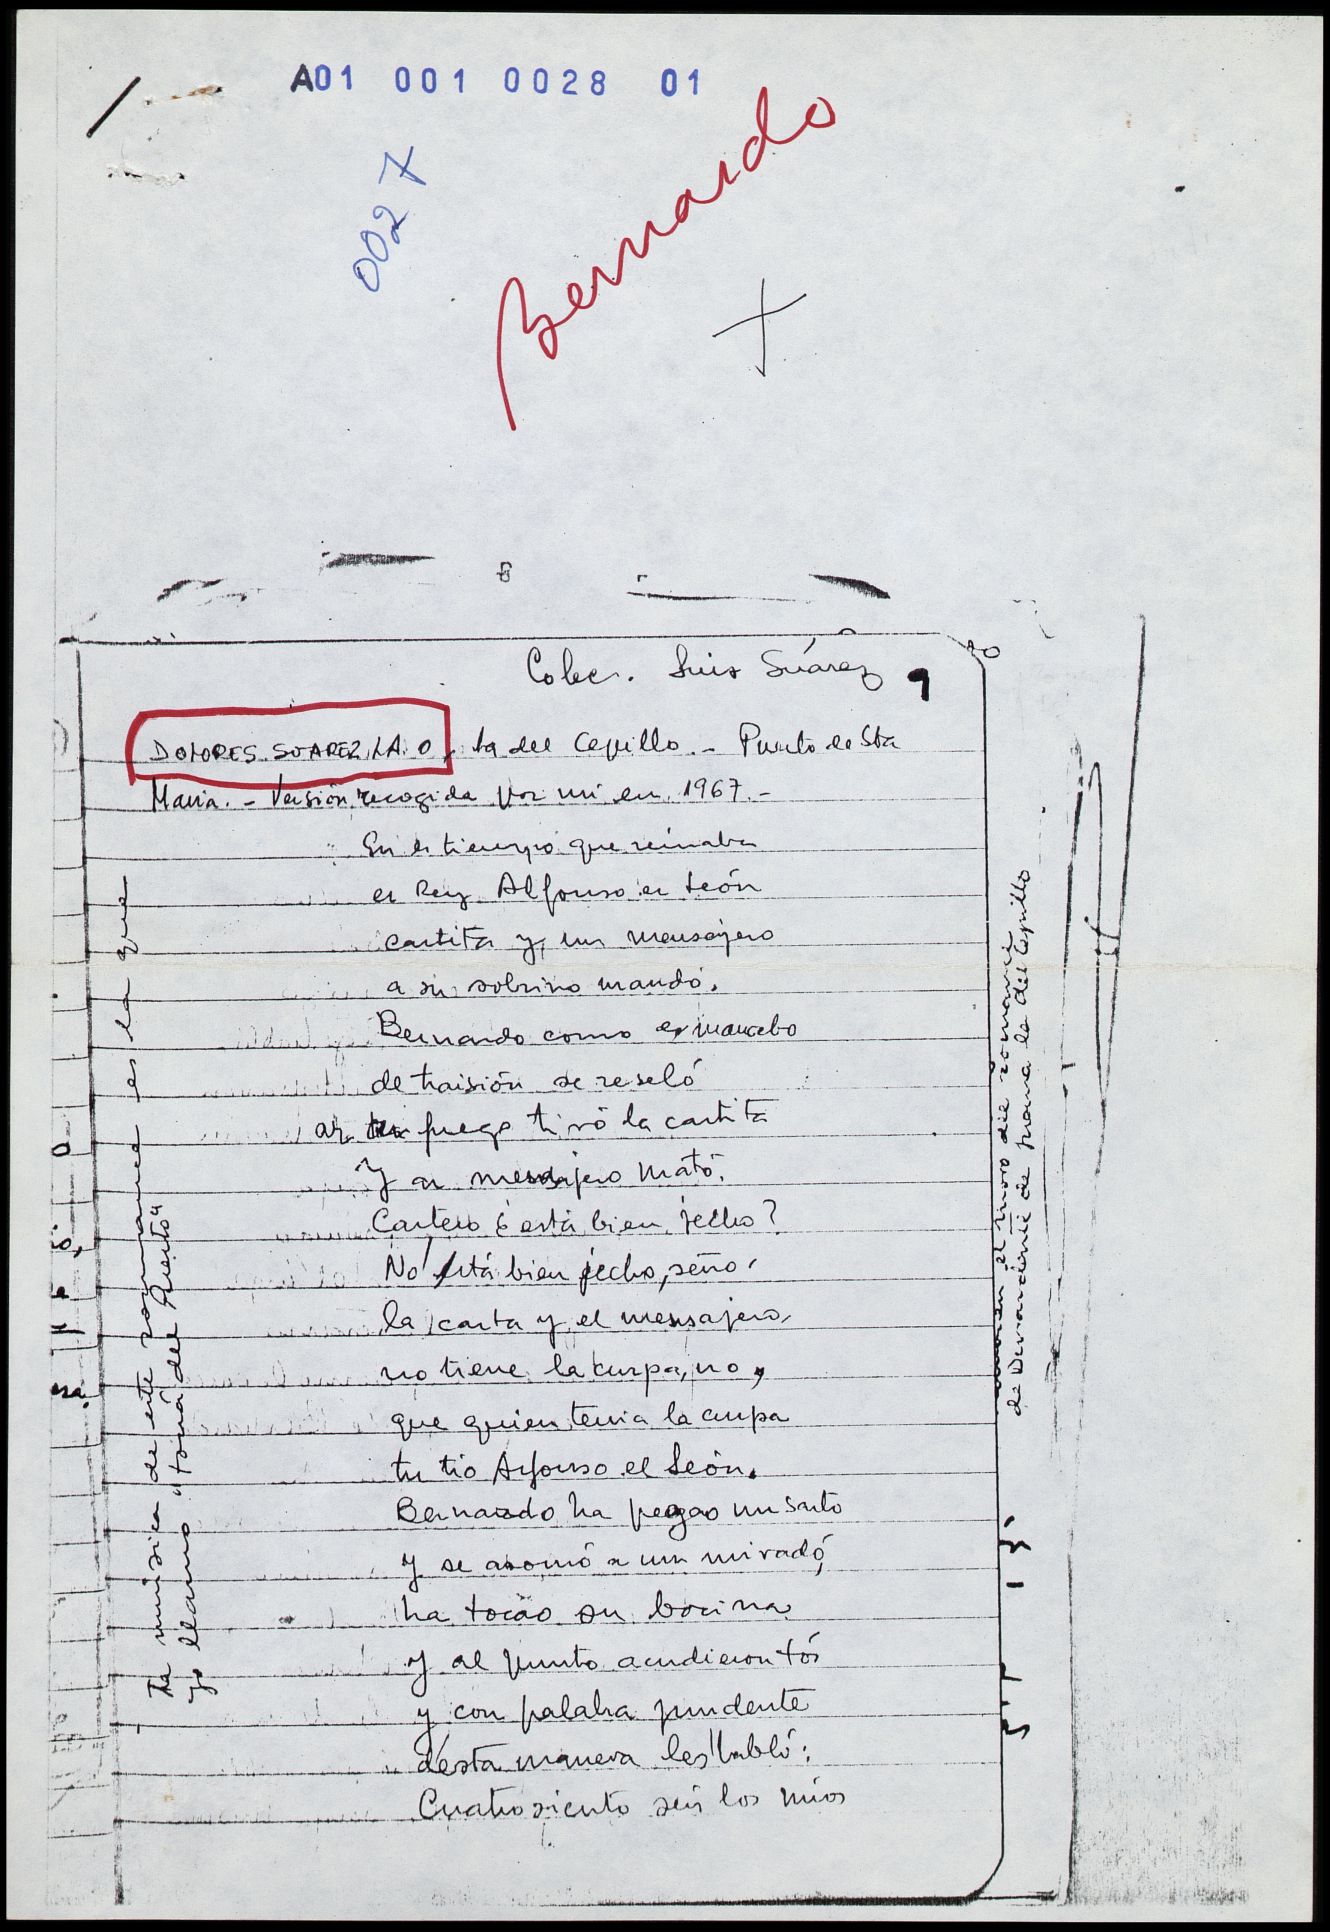 A01 001 0028 01
0027
Bernardo
Colec. Luis Suárez
9
DOLORES SUAREZ, LA O, la del Cepillo.- Puerto de Sta
Maria.- Versión recogida por mi en 1967.-
En er tiempo que reinaba
er Rey Alfonso er León
cartita y un mensajero
a su sobrino mandó.
Bernardo como er mancebo
de traisión se reseló
ar fuego tiró la cartita
Y ar mensajero mató.
Cartero ¿está bien jecho?
No está bien jecho, seño.
la carta y el mensajero
no tiene la curpa, no,
que quien tenia la curpa
tu tio Arfonso el León.
Bernardo ha pegao un sarto
y se asomó a un miradó,
ha tocao su bocina
y al punto acudieron tós
y con palabra prudente
désta manera les habló:
Cuatrosiento seis los mios
- La música de este romance es la que
yo llamo "toná del Puerto"